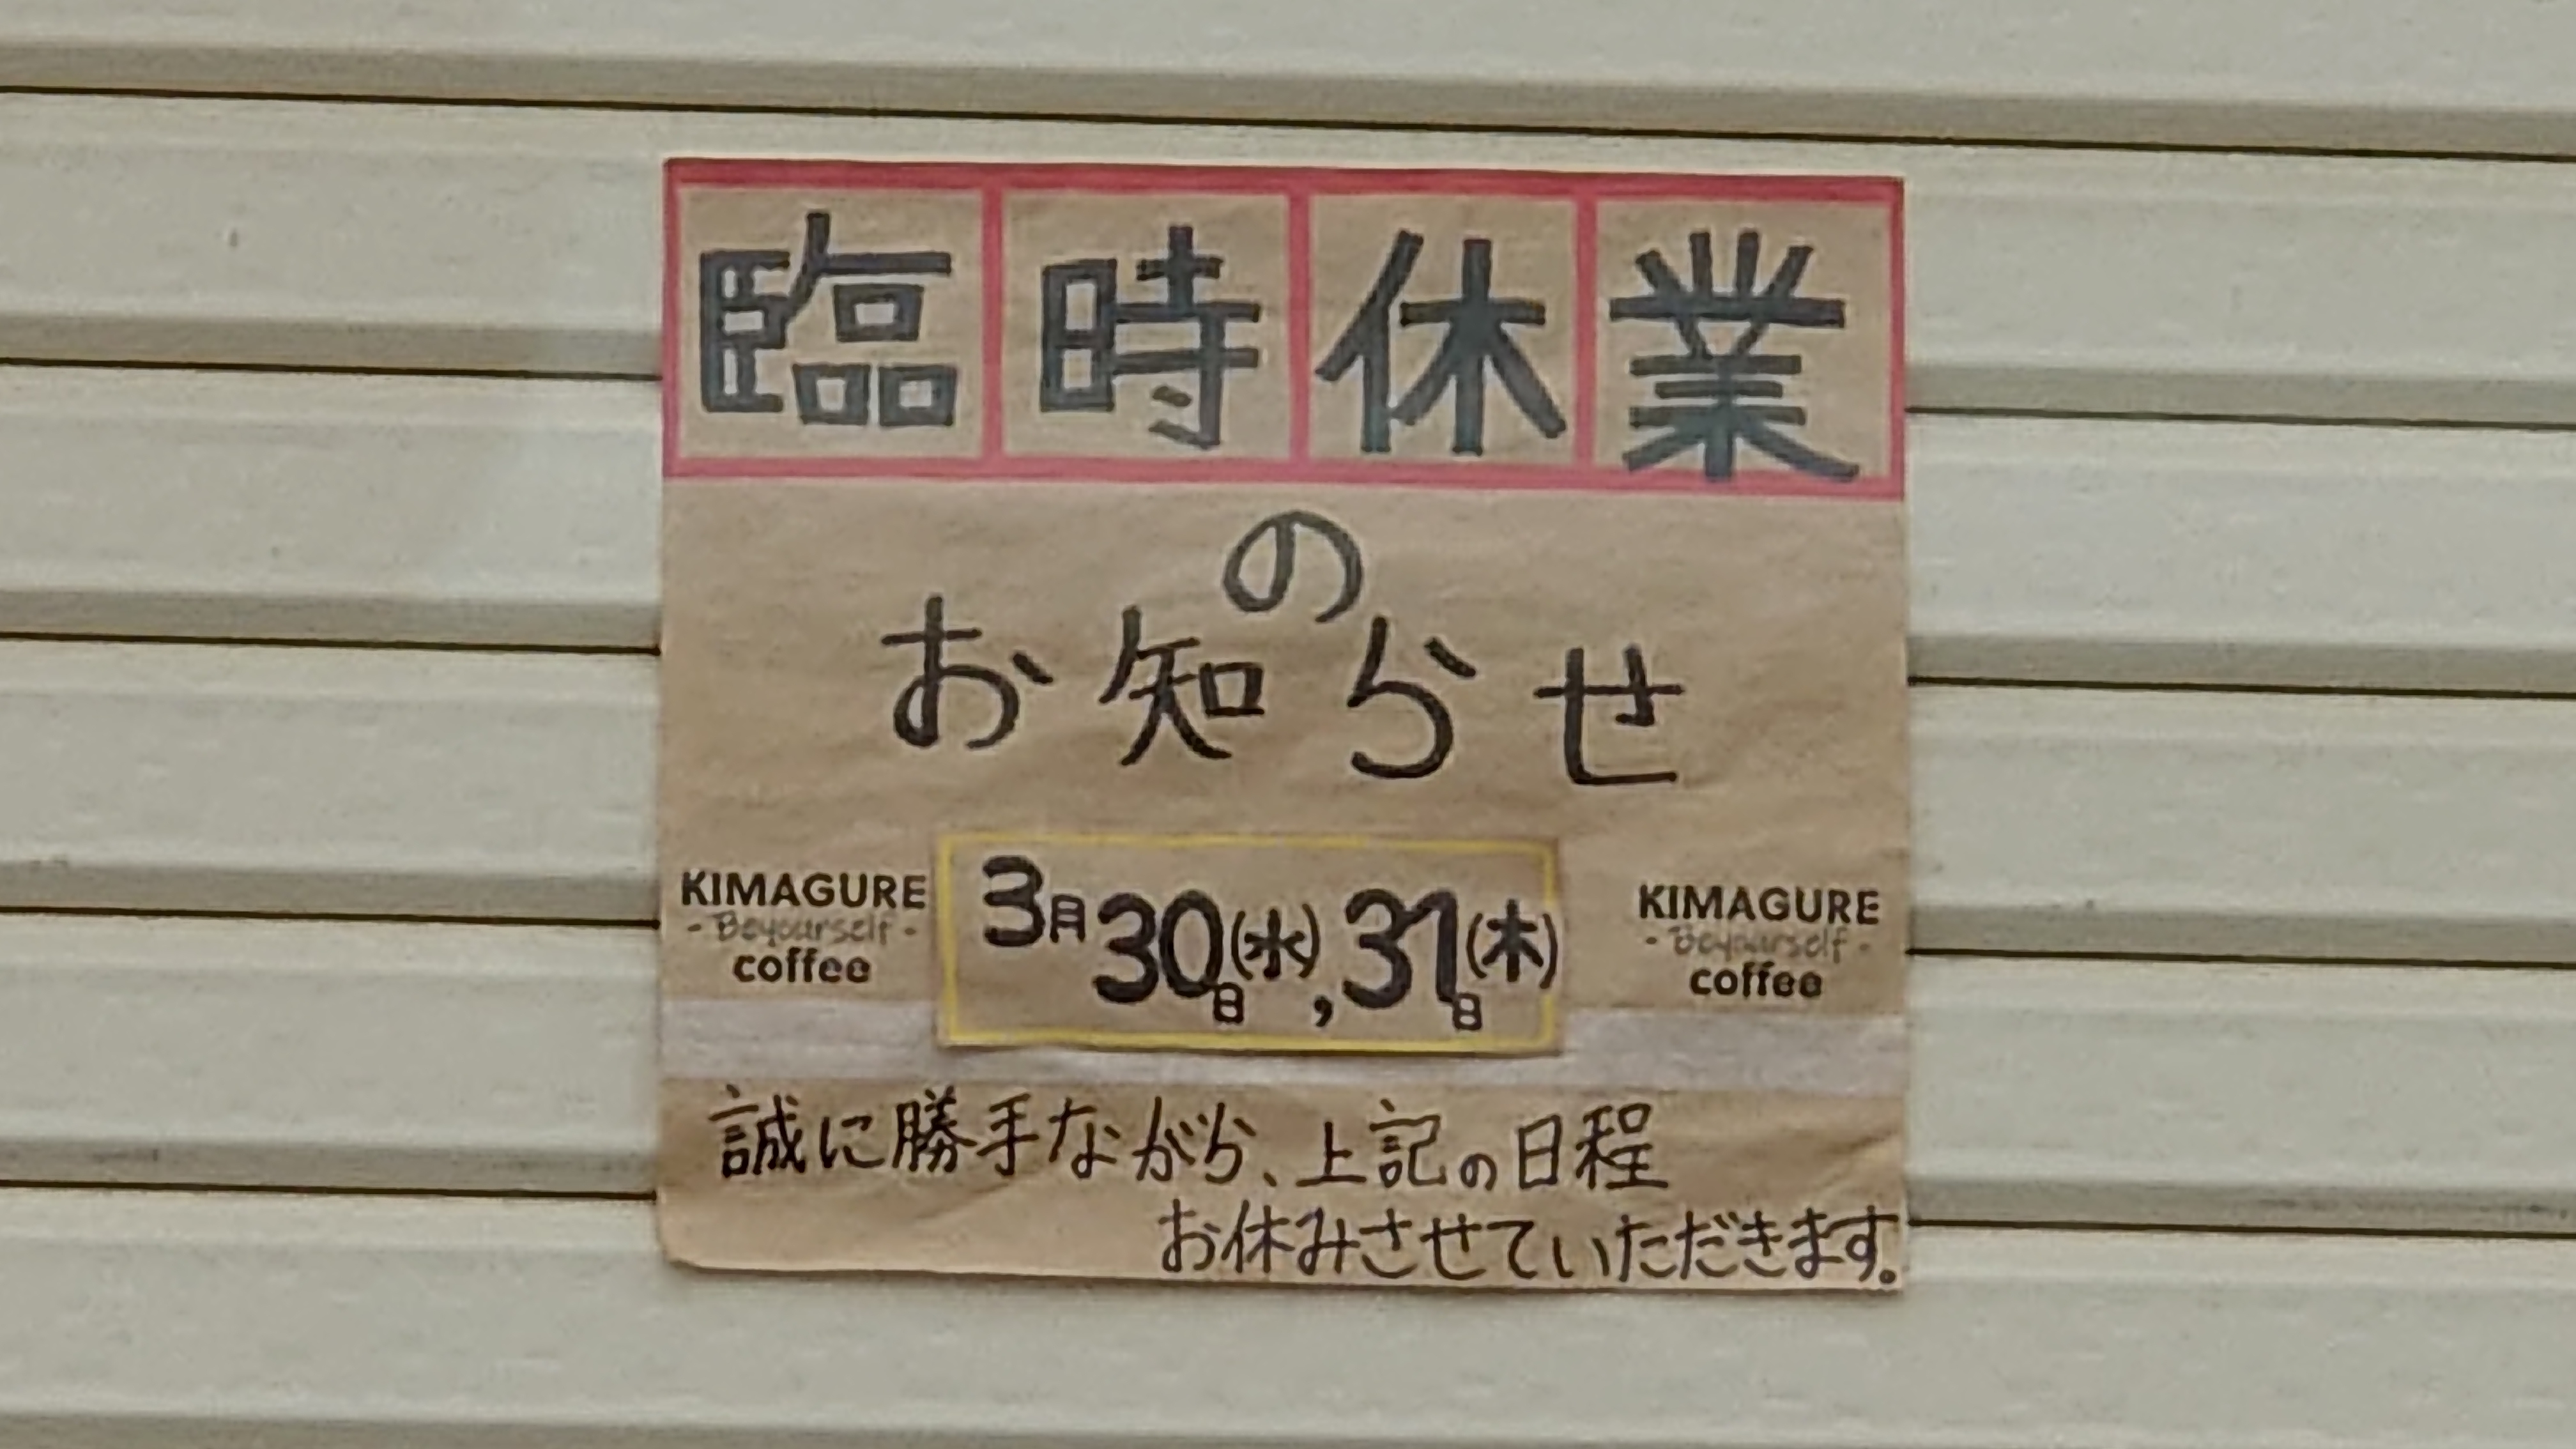 臨時休業
の
お知らせ
KIMAGURE
- Beyourself -
coffee
3月30日(水),31日(木)
KIMAGURE
- Beyourself -
coffee
誠に勝手ながら、上記の日程
お休みさせていただきます。